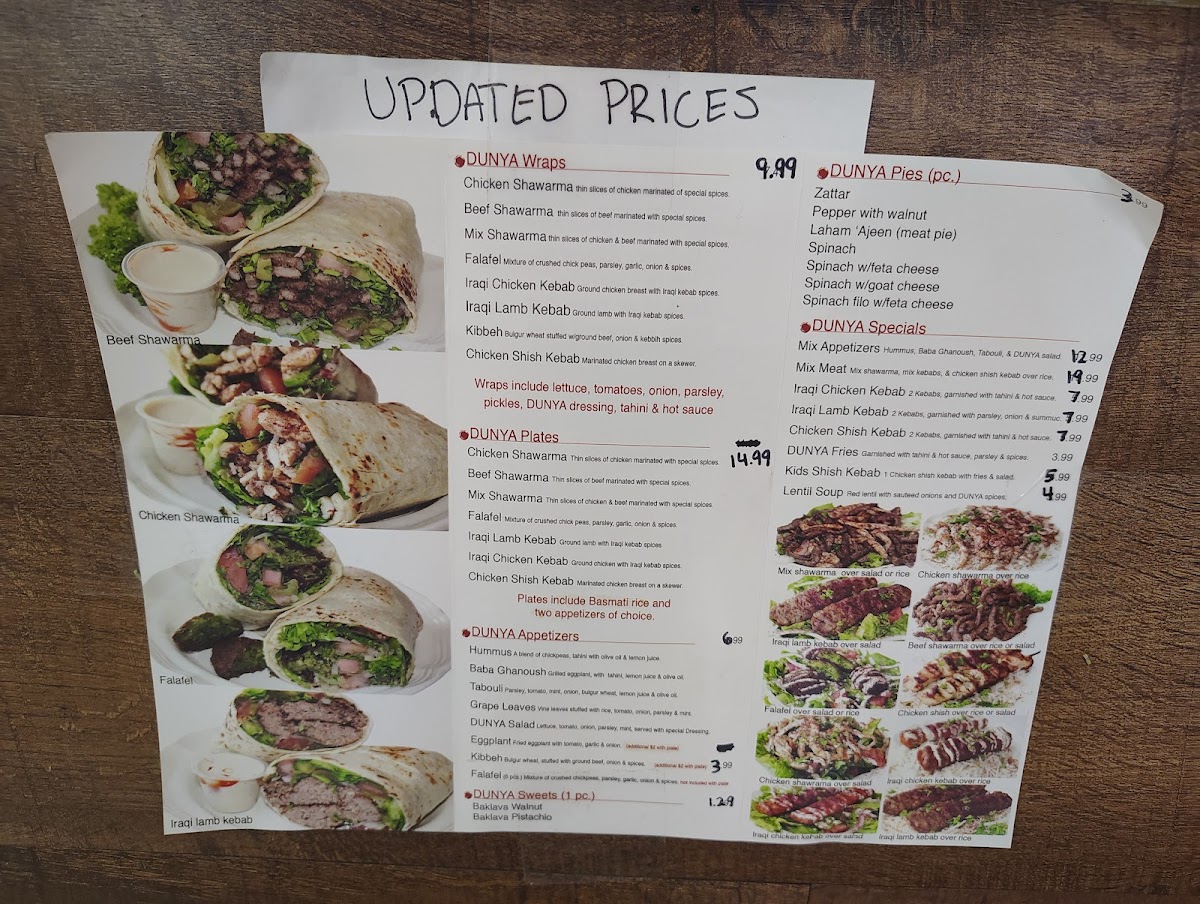 UPDATED PRICES
Beef Shawarma
Chicken Shawarma
Falafel
Iraqi lamb kebab
DUNYA Wraps 9.99
Chicken Shawarma thin slices of chicken marinated of special spices.
Beef Shawarma thin slices of beef marinated with special spices.
Mix Shawarma thin slices of chicken & beef marinated with special spices.
Falafel Mixture of crushed chick peas, parsley, garlic, onion & spices.
Iraqi Chicken Kebab Ground chicken breast with Iraqi kebab spices.
Iraqi Lamb Kebab Ground lamb with Iraqi kebab spices.
Kibbeh Bulgur wheat stuffed w/ground beef, onion & kebbih spices.
Chicken Shish Kebab Marinated chicken breast on a skewer.
Wraps include lettuce, tomatoes, onion, parsley,
pickles, DUNYA dressing, tahini & hot sauce
DUNYA Plates
Chicken Shawarma Thin slices of chicken marinated with special spices. 14.99
Beef Shawarma Thin slices of beef marinated with special spices.
Mix Shawarma Thin slices of chicken & beef marinated with special spices
Falafel Mixture of crushed chick peas, parsley, garlic, onion & spices.
Iraqi Lamb Kebab Ground lamb with Iraqi kebab spices
Iraqi Chicken Kebab Ground chicken with Iraqi kebab spices.
Chicken Shish Kebab Marinated chicken breast on a skewer.
Plates include Basmati rice and
two appetizers of choice.
DUNYA Appetizers 6.99
Hummus A blend of chickpeas, tahini with olive oil & lemon juice.
Baba Ghanoush Grilled eggplant, with tahini, lemon juice & olive oil.
Tabouli Parsley, tomato, mint, onion, bulgur wheat, lemon juice & olive oil.
Grape Leaves Vine leaves stuffed with rice, tomato, onion, parsley & mint.
DUNYA Salad Lettuce, tomato, onion, parsley, mint, served with special Dressing.
Eggplant Fried eggplant with tomato, garlic & onion. (additional $2 with plate)
Kibbeh Bulgur wheat, stuffed with ground beef, onion & spices. (additional $2 with plate) 3.99
Falafel (6 pcs.) Mixture of crushed chickpeas, parsley, garlic, onion & spices. not included with plate
DUNYA Sweets (1 pc.) 1.29
Baklava Walnut
Baklava Pistachio
DUNYA Pies (pc.) 3.99
Zattar
Pepper with walnut
Laham ‘Ajeen (meat pie)
Spinach
Spinach w/feta cheese
Spinach w/goat cheese
Spinach filo w/feta cheese
DUNYA Specials
Mix Appetizers Hummus, Baba Ghanoush, Tabouli, & DUNYA salad 12.99
Mix Meat Mix shawarma, mix kebabs, & chicken shish kebab over rice. 19.99
Iraqi Chicken Kebab 2 Kebabs, garnished with tahini & hot sauce. 7.99
Iraqi Lamb Kebab 2 Kebabs, garnished with parsley, onion & summuc 7.99
Chicken Shish Kebab 2 Kebabs, garnished with tahini & hot sauce. 7.99
DUNYA Fries Garnished with tahini & hot sauce, parsley & spices. 3.99
Kids Shish Kebab 1 Chicken shish kebab with fries & salad. 5.99
Lentil Soup Red lentil with sauteed onions and DUNYA spices. 4.99
Mix shawarma over salad or rice
Chicken shawarma over rice
Iraqi lamb kebab over salad
Beef shawarma over rice or salad
Falafel over salad or rice
Chicken shish over rice or salad
Chicken shawarma over salad
Iraqi chicken kebab over rice
Iraqi chicken kebab over salad
Iraqi lamb kebab over rice